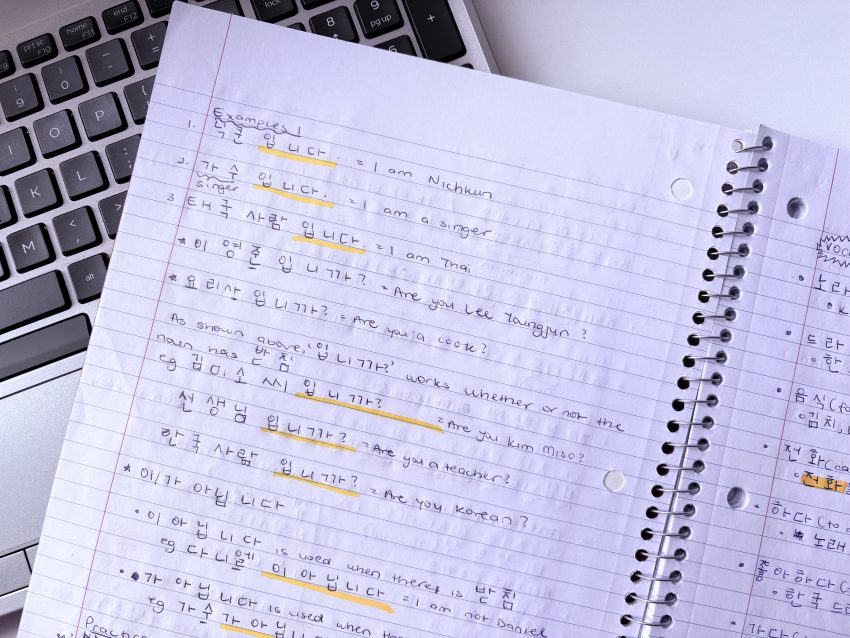 Examples
1. 닉쿤 입니다. = I am Nichkun
2. 가수 입니다. = I am a singer
singer
3. 태국 사람 입니다. = I am Thai
* 이영준 입니까? = Are you Lee Youngjun?
* 요리사 입니까? = Are you a cook?
As shown above, '입니까?' works whether or not the
noun has 받침
eg 김미소 씨 입니까? = Are you Kim Miso?
선생님 입니까? = Are you a teacher?
한국 사람 입니까? = Are you Korean?
* 이/가 아닙니다
• 이 아닙니다 is used when there is 받침
eg 다니엘 이 아닙니다 = I am not Daniel
• 가 아닙니다 is used when
eg 가수 가 아닙
Practice
• 노래
• 드라
• 한
• 음식 (fo
• 김치,
• 전화 (ca
• 전화
• 하다 (to
• 노래
• 좋아하다 (
• 한국 드
• 가다 (
prtsc F10
home F11
end F12
lock
8
9 pg up
+
9
0
I
O
P
K
L
M
<
>
alt